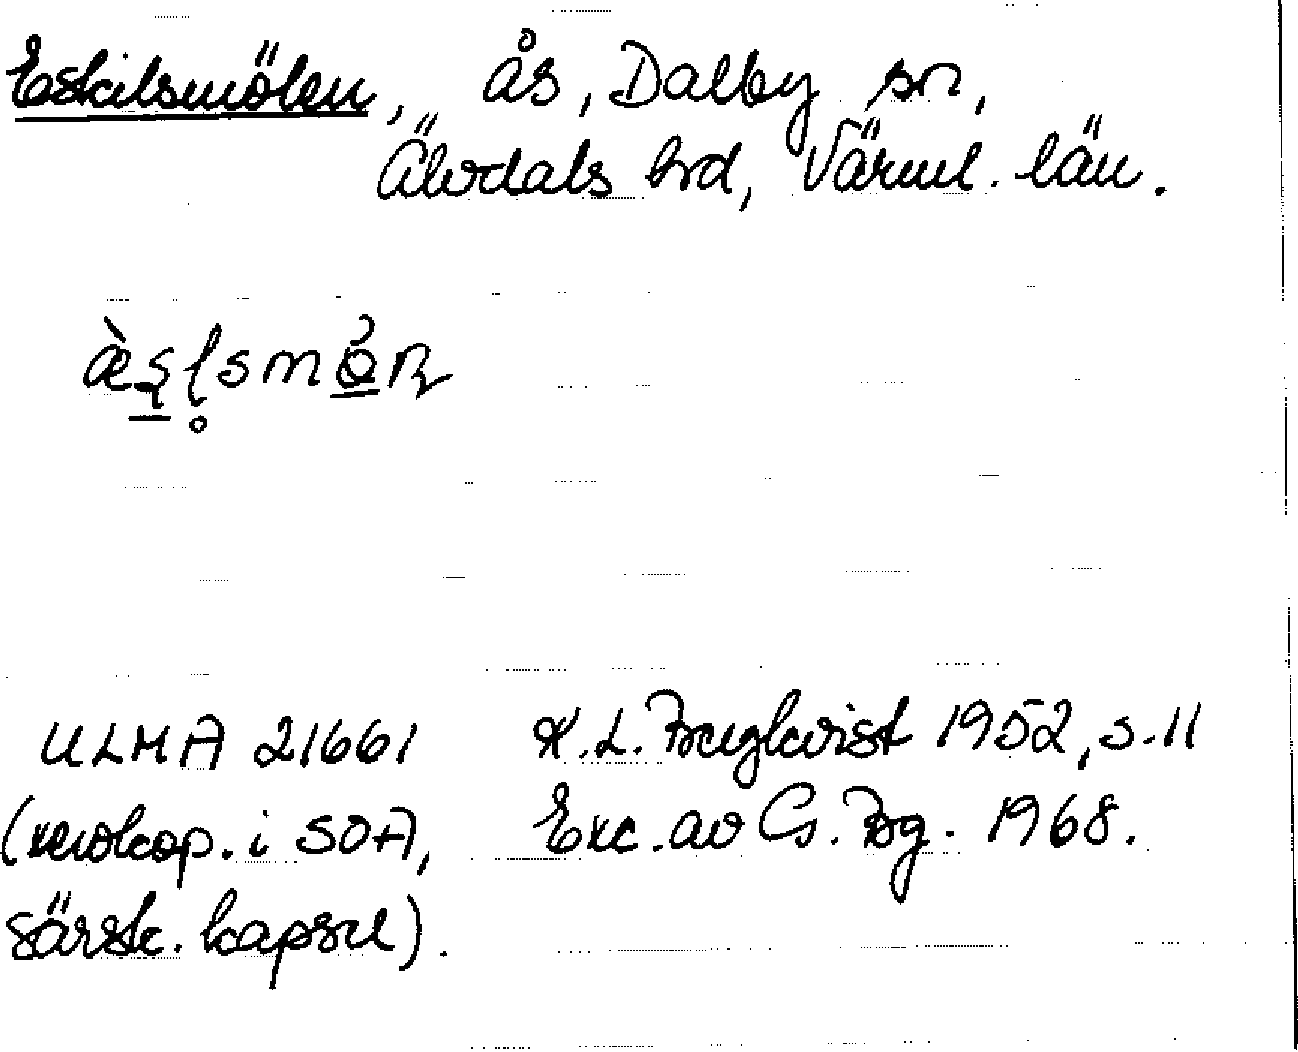 Eskilsmölen, ås, Dalby sn,
Älvdals hrd, Värml. län.
ULMA 21661 K.L. Bruglkvist 1952, s. 11
(xerokop. i SOA, Exc. av G. Bg. 1968.
särsk. kapsel).